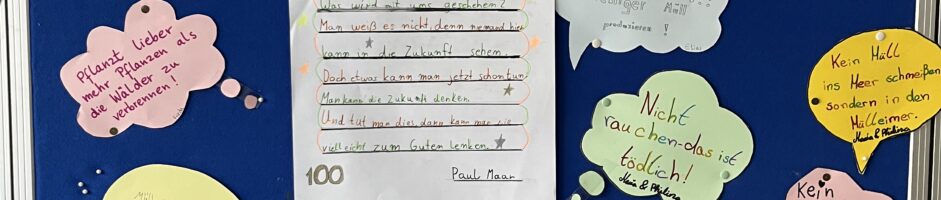 Pflanzt lieber
mehr Pflanzen als
die Wälder zu
verbrennen!
Was wird mit uns geschehen?
Man weiß es nicht, denn niemand hier
kann in die Zukunft sehen.
Doch etwas kann man jetzt schon tun
Man kann die Zukunft denken
Und tut man dies, dann kann man sie
vielleicht zum Guten lenken.
100
Paul Maar
Müll
produzieren!
Nicht
rauchen-das ist
tödlich!
Kein Müll
ins Meer schmeißen
sondern in den
Mülleimer.
Kein